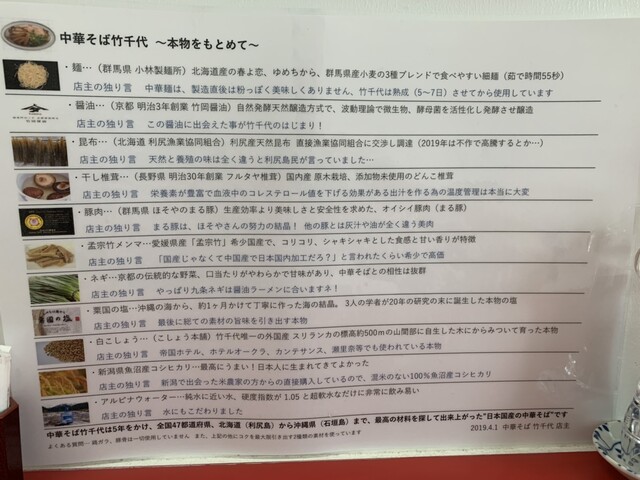 中華そば竹千代　～本物をもとめて～
・麺…（群馬県 小林製麺所）北海道産の春よ恋、ゆめちから、群馬県産小麦の3種ブレンドで食べやすい細麺（茹で時間55秒）
店主の独り言　中華麺は、製造直後は粉っぽく美味しくありません、竹千代は熟成（5～7日）させてから使用しています
・醤油…（京都 明治3年創業 竹岡醤油）自然発酵天然醸造方式で、波動理論で微生物、酵母菌を活性化し発酵させ醸造
店主の独り言　この醤油に出会えた事が竹千代のはじまり！
・昆布…（北海道 利尻漁業協同組合）利尻産天然昆布　直接漁業協同組合に交渉し調達（2019年は不作で高騰するとか…）
店主の独り言　天然と養殖の味は全く違うと利尻島民が言っていました…
・干し椎茸…（長野県 明治30年創業 フルタヤ椎茸）国内産 原木栽培、添加物未使用のどんこ椎茸
店主の独り言　栄養素が豊富で血液中のコレステロール値を下げる効果がある出汁を作る為の温度管理は本当に大変
・豚肉…（群馬県 ほそやのまる豚）生産効率より美味しさと安全性を求めた、オイシイ豚肉（まる豚）
店主の独り言　まる豚は、ほそやさんの努力の結晶！ 他の豚とは灰汁や油が全く違う美肉
・孟宗竹メンマ…愛媛県産「孟宗竹」希少国産で、コリコリ、シャキシャキとした食感と甘い香りが特徴
店主の独り言　「国産じゃなくて中国産で日本国内加工だろ？」と言われたくらい希少で高価
・ネギ…京都の伝統的な野菜、口当たりがやわらかで甘みがあり、中華そばとの相性は抜群
店主の独り言　やっぱり九条ネギは醤油ラーメンに合いますネ！
・粟国の塩…沖縄の海から、約1ヶ月かけて丁寧に作った海の結晶。 3人の学者が20年の研究の末に誕生した本物の塩
店主の独り言　最後に総ての素材の旨味を引き出す本物
・白こしょう…（こしょう本舗）竹千代唯一の外国産 スリランカの標高約500mの山間部に自生した木にからみついて育った本物
店主の独り言　帝国ホテル、ホテルオークラ、カンテサンス、瀬里奈等でも使われている本物
・新潟県魚沼産コシヒカリ…最高にうまい！日本人に生まれてきてよかった
店主の独り言　新潟で出会った米農家の方からの直接購入しているので、混米のない100%魚沼産コシヒカリ
・アルピナウォーター…純水に近い水、硬度指数が 1.05 と超軟水なだけに非常に飲み易い
店主の独り言　水にもこだわりました
中華そば竹千代は5年をかけ、全国47都道府県、北海道（利尻島）から沖縄県（石垣島）まで、最高の材料を探して出来上がった"日本国産の中華そば"です
よくある質問… 鶏ガラ、豚骨は一切使用していません　また、上記の他にコクを最大限引き出す2種類の素材を使っています
2019.4.1　中華そば 竹千代 店主